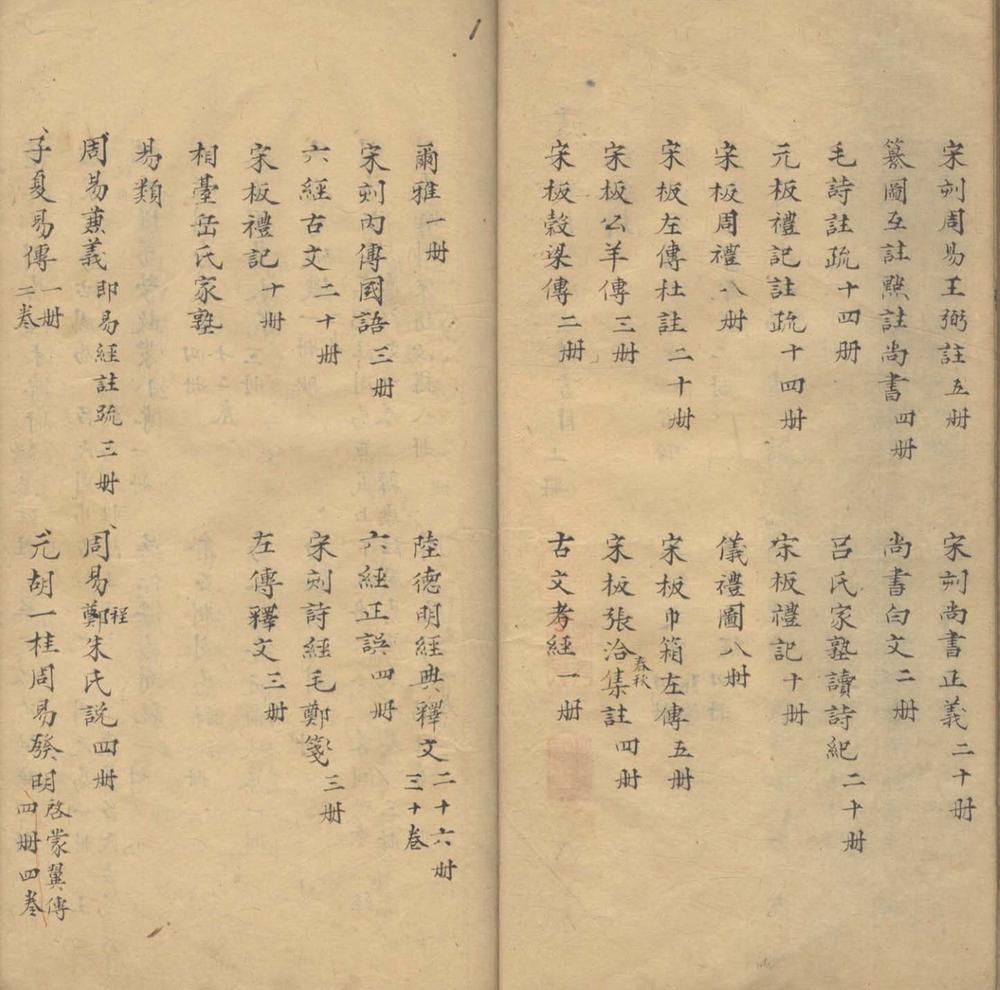 宋刻周易王弼註五冊 宋刻尚書正義二十冊
纂圖互註點註尚書四冊 尚書白文二冊
毛詩註疏十四冊 呂氏家塾讀詩紀二十冊
元板禮記註疏十四冊 宋板禮記十冊
宋板周禮八冊 儀禮圖八冊
宋板左傳杜註二十冊 宋板巾箱左傳五冊
宋板公羊傳三冊 宋板張洽春秋集註四冊
宋板穀梁傳二冊 古文孝經一冊
爾雅一冊 陸德明經典釋文二十六冊三十卷
宋刻內傳國語三冊 六經正誤四冊
六經古文二十冊 宋刻詩經毛鄭箋三冊
宋板禮記十冊 左傳釋文三冊
相臺岳氏家塾
易類
周易兼義即易經註疏三冊 周易鄭程朱氏説四冊
子夏易傳一冊二卷 元胡一桂周易發明啓蒙翼傳四冊四卷